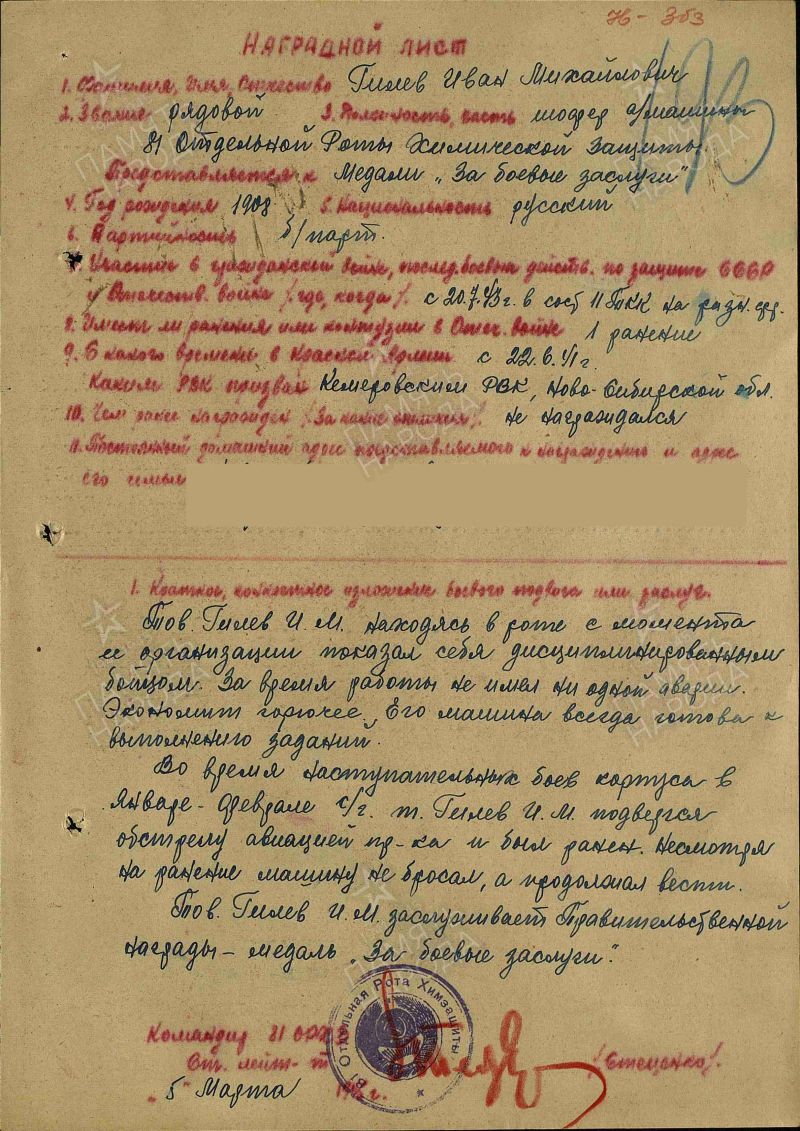 76-363
НАГРАДНОЙ ЛИСТ
1. Фамилия, Имя, Отчество Гилев Иван Михайлович
2. Звание рядовой 3. Должность, часть шофер а/машины
81 Отдельной Роты Химической Защиты.
Представляется к Медали „За боевые заслуги"
4. Год рождения 1908 5. Национальность русский
6. Партийность б/парт.
7. Участие в гражданской войне, послед. боевых действ. по защите СССР
и Отечеств. войне /где, когда/. с 20.7.43г. в сост 11 ТКК на разн. фр.
8. Имеет ли ранения или контузии в Отеч. войне 1 ранение
9. С какого времени в Красной Армии с 22.6.41г.
Каким РВК призван Кемеровским РВК, Ново-Сибирской обл.
10. Чем ранее награжден /За какие отличия/. не награждался
11. Постоянный домашний адрес представляемого к награждению и адрес
его семьи
1. Краткое, конкретное изложение боевого подвига или заслуг.
Тов. Гилев И.М. находясь в роте с момента
ее организации показал себя дисциплинированным
бойцом. За время работы не имел ни одной аварии.
Экономит горючее. Его машина всегда готова к
выполнению заданий.
Во время наступательных боев корпуса в
Январе-феврале с/г. т. Гилев И.М. подвергся
обстрелу авиацией пр-ка и был ранен. Несмотря
на ранение машину не бросал, а продолжал вести.
Тов. Гилев И.М. заслуживает Правительственной
награды - медаль „За боевые заслуги".
81 Отдельная Рота Химзащиты
Командир 81 ОРХЗ
Ст. лейт-т /Стеценко/.
"5" Марта
ПАМЯТЬ НАРОДА